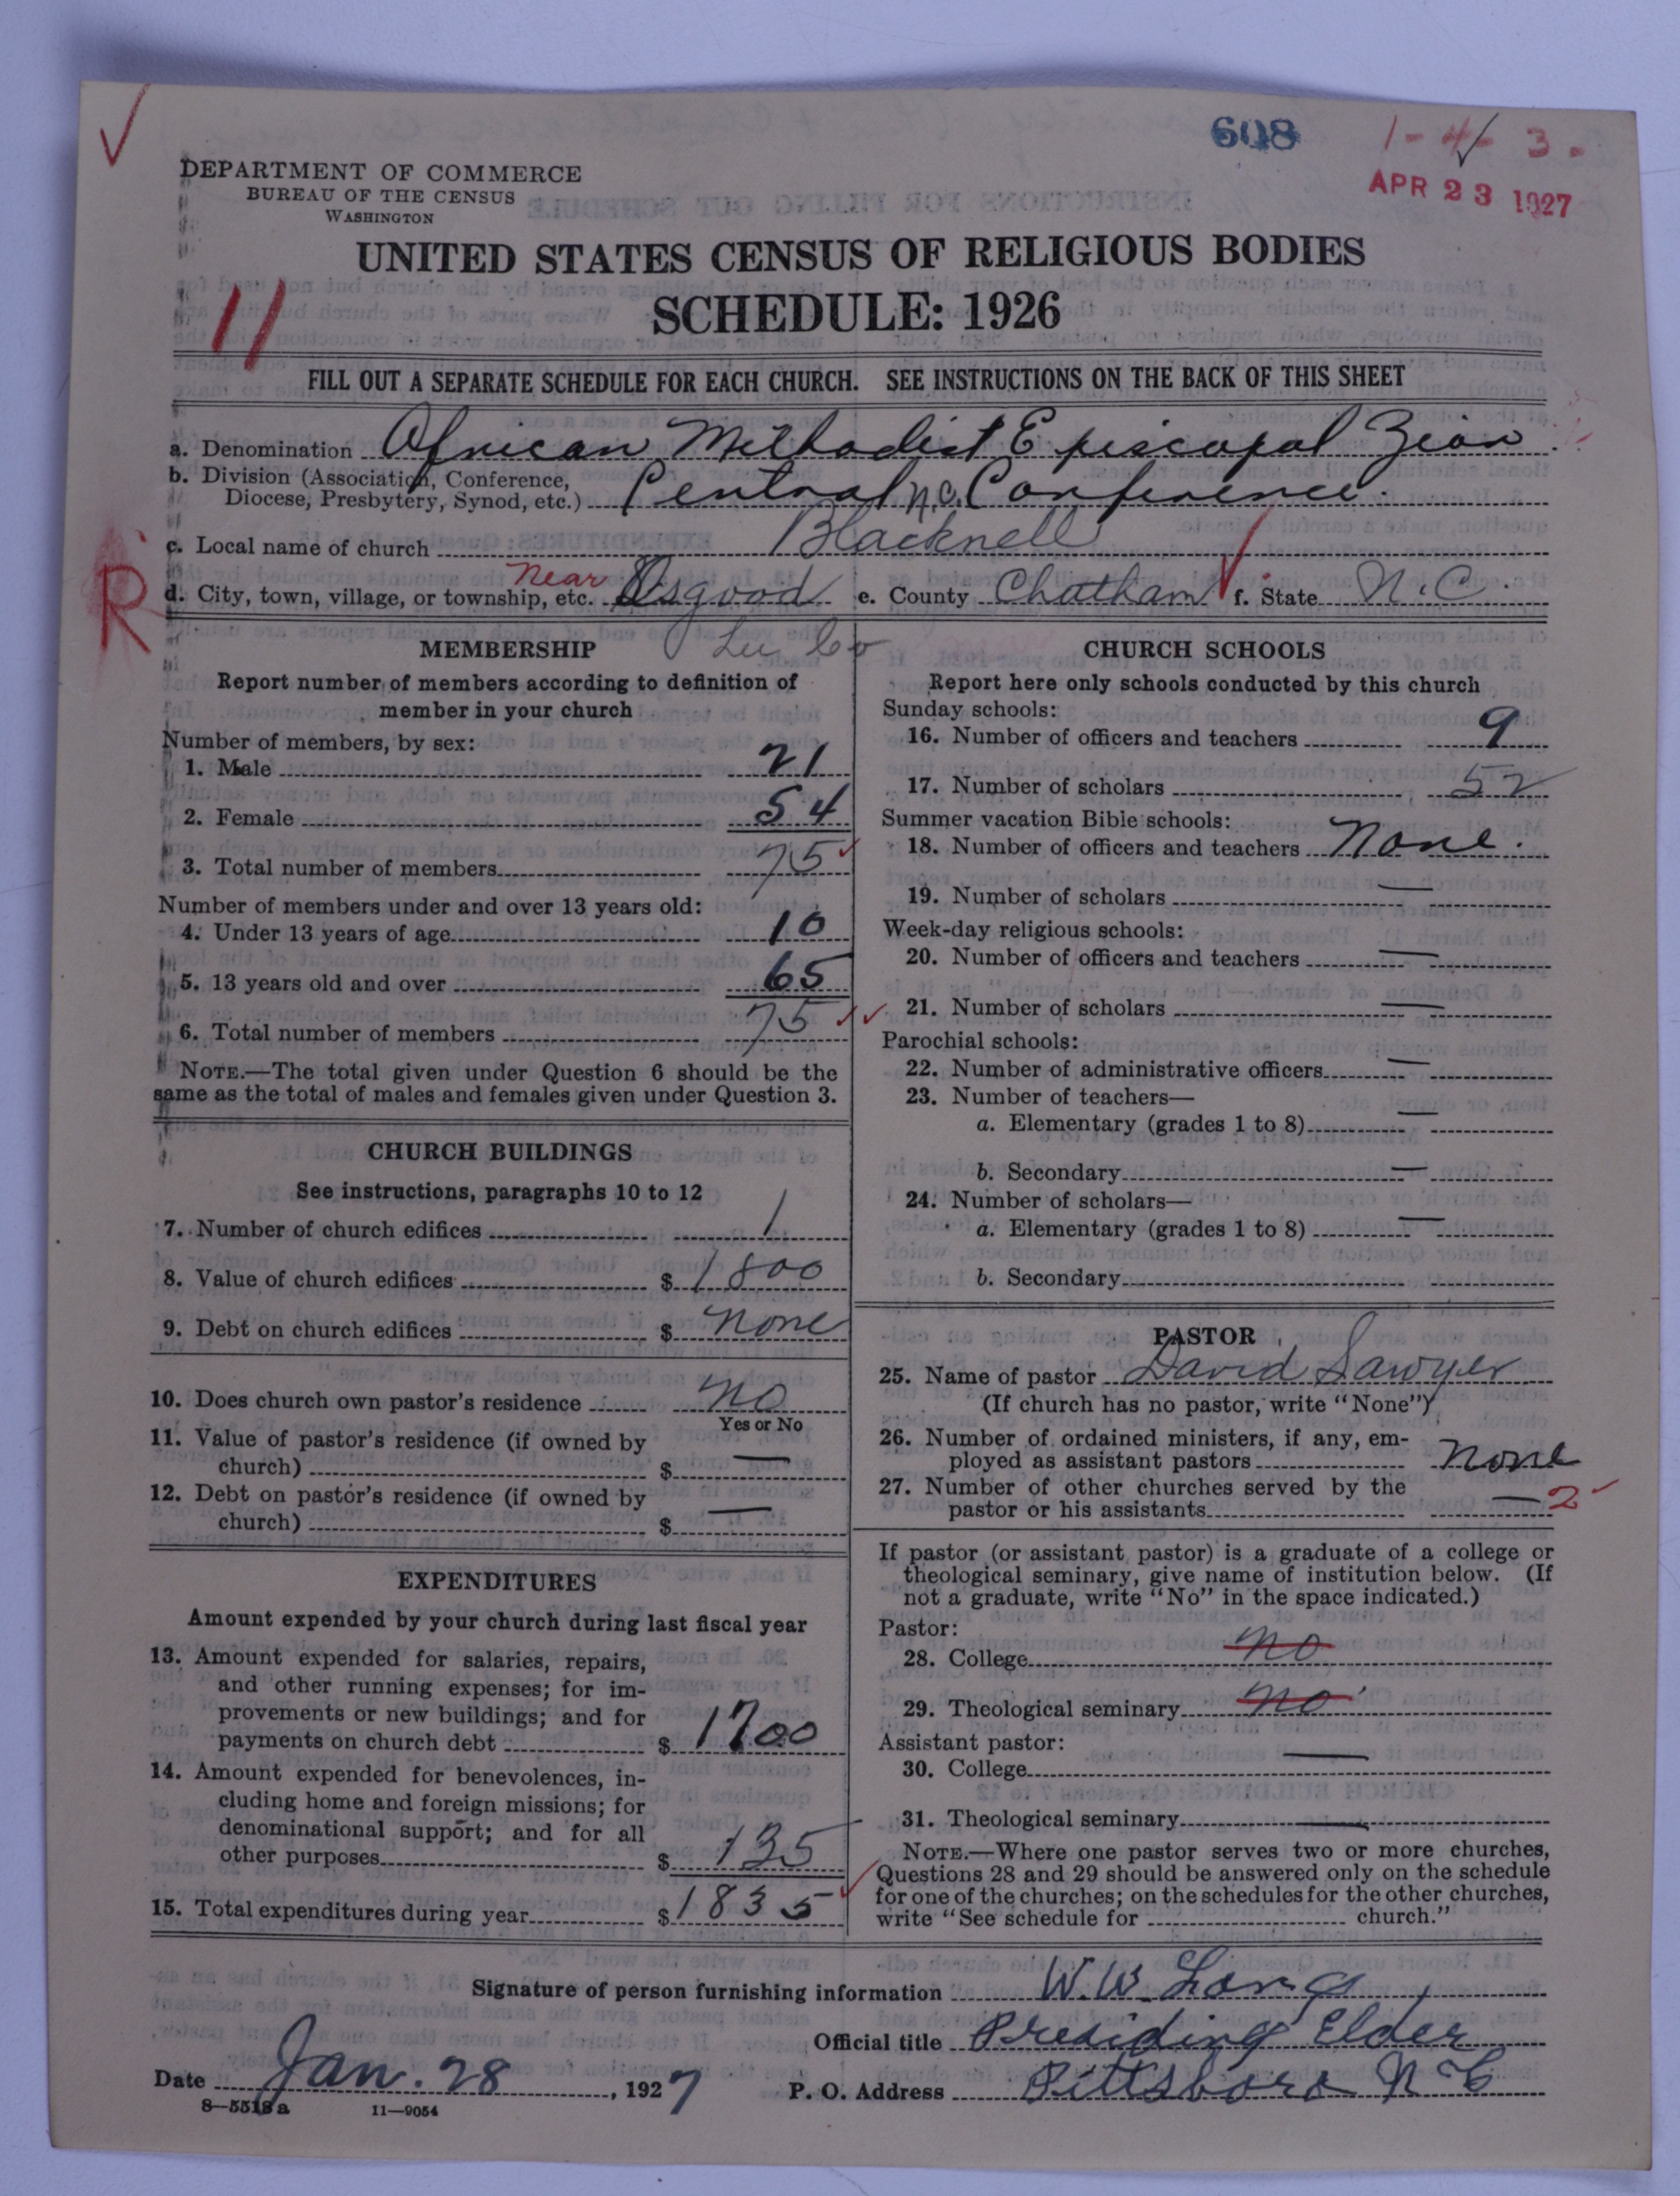 608
1-4-3.
APR 23 1927
DEPARTMENT OF COMMERCE
BUREAU OF THE CENSUS
WASHINGTON
UNITED STATES CENSUS OF RELIGIOUS BODIES
SCHEDULE: 1926
11
FILL OUT A SEPARATE SCHEDULE FOR EACH CHURCH. SEE INSTRUCTIONS ON THE BACK OF THIS SHEET
a. Denomination African Methodist Episcopal Zion
b. Division (Association, Conference,
Diocese, Presbytery, Synod, etc.) Central N.C. Conference.
c. Local name of church Blacknell
R
d. City, town, village, or township, etc. Near Osgood e. County Chatham f. State N.C.
Lee Co
MEMBERSHIP
Report number of members according to definition of
member in your church
Number of members, by sex:
1. Male 21
2. Female 54
3. Total number of members 75
Number of members under and over 13 years old:
4. Under 13 years of age 10
5. 13 years old and over 65
6. Total number of members 75
NOTE.—The total given under Question 6 should be the
same as the total of males and females given under Question 3.
CHURCH BUILDINGS
See instructions, paragraphs 10 to 12
7. Number of church edifices 1
8. Value of church edifices $ 1800
9. Debt on church edifices $ None
10. Does church own pastor's residence No
Yes or No
11. Value of pastor's residence (if owned by
church) $ —
12. Debt on pastor's residence (if owned by
church) $ —
EXPENDITURES
Amount expended by your church during last fiscal year
13. Amount expended for salaries, repairs,
and other running expenses; for im-
provements or new buildings; and for
payments on church debt $ 1700
14. Amount expended for benevolences, in-
cluding home and foreign missions; for
denominational support; and for all
other purposes $ 135
15. Total expenditures during year $ 1835
CHURCH SCHOOLS
Report here only schools conducted by this church
Sunday schools:
16. Number of officers and teachers 9
17. Number of scholars 52
Summer vacation Bible schools:
18. Number of officers and teachers None.
19. Number of scholars —
Week-day religious schools:
20. Number of officers and teachers —
21. Number of scholars —
Parochial schools:
22. Number of administrative officers —
23. Number of teachers—
a. Elementary (grades 1 to 8) —
b. Secondary —
24. Number of scholars—
a. Elementary (grades 1 to 8) —
b. Secondary
PASTOR
25. Name of pastor David Sawyer
(If church has no pastor, write "None")
26. Number of ordained ministers, if any, em-
ployed as assistant pastors None
27. Number of other churches served by the
pastor or his assistants — 2
If pastor (or assistant pastor) is a graduate of a college or
theological seminary, give name of institution below. (If
not a graduate, write "No" in the space indicated.)
Pastor:
28. College No
29. Theological seminary No
Assistant pastor:
30. College —
31. Theological seminary —
NOTE.—Where one pastor serves two or more churches,
Questions 28 and 29 should be answered only on the schedule
for one of the churches; on the schedules for the other churches,
write "See schedule for church."
Signature of person furnishing information W. W. Long
Official title Presiding Elder
Date Jan. 28, 1927 P. O. Address Pittsboro N C
8—5518a 11—9054